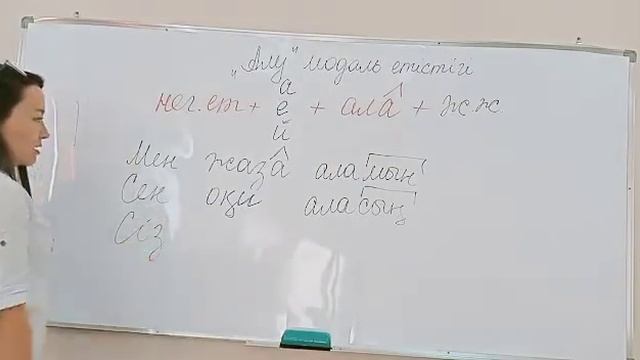 "Алу" модаль етістігі
а
нег. ет + е + ала + ж.ж.
й
Мен жаза аламын
Сен оқи аласың
Сіз